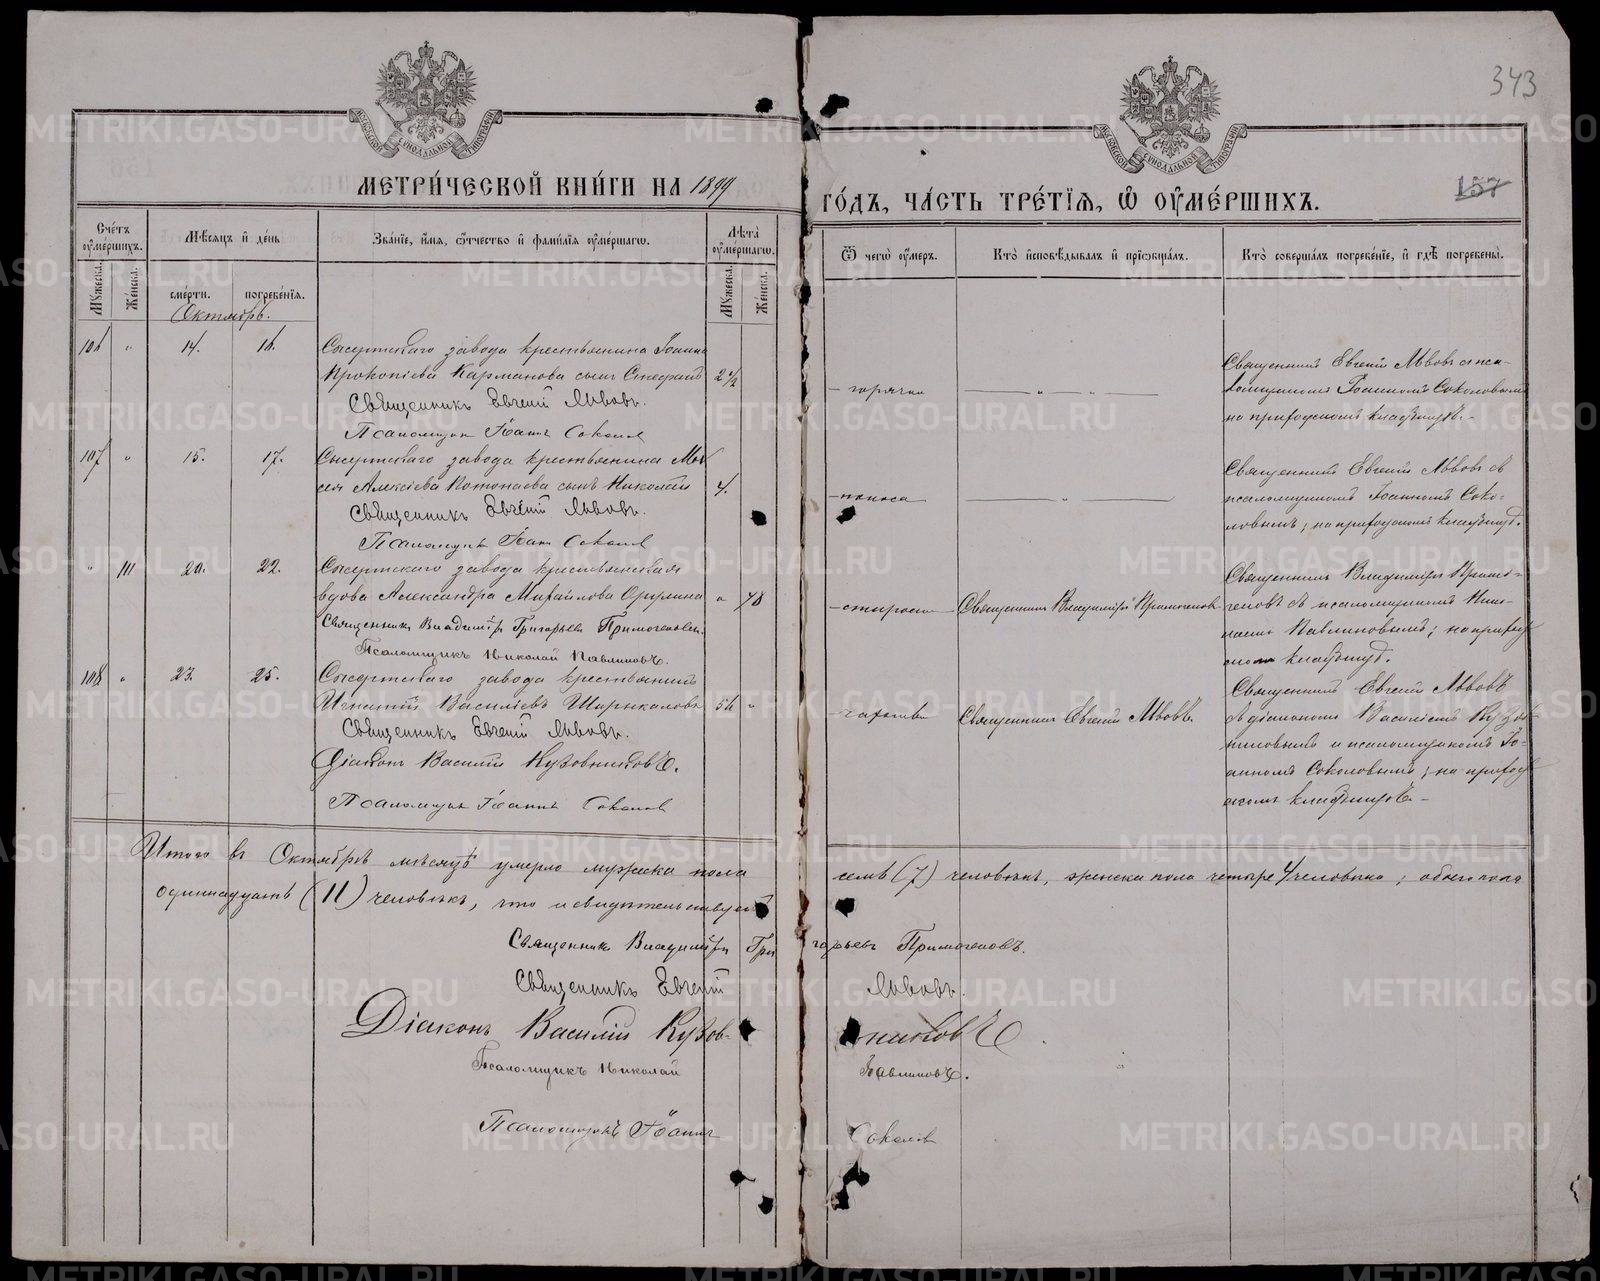 343
МЕТРИ́ЧЕСКОЙ КНИ́ГИ НА 1899
ГО́ДЪ, ЧА́СТЬ ТРЕ́ТІѦ, Ѽ ОУ҆МЕ́РШИХЪ.
157
Сче́тъ оу҆ме́ршихъ.
Му́жеска.
Же́нска.
Мѣ́сяцъ и҆ де́нь
сме́рти.
погребе́нїя.
Зва́нїе, и҆́мя, ѻ҆́тчество и҆ фами́лїя оу҆ме́ршагѡ.
Лѣ̀та оу҆ме́ршагѡ.
Му́жеска.
Же́нска.
Ѿ чегѡ̀ оу҆́меръ.
Кто̀ и҆сповѣ́дывалъ и҆ прїѡбща́лъ.
Кто̀ соверша́лъ погребе́нїе, и҆ гдѣ̀ погребены̀.
Октябрь.
106 " 14. 16. Сысертскаго завода крестьянина Іоанна
Прокопіева Карманова сынъ 2 1/2
Священникъ Евгеній Львовъ.
Псаломщик Іоаннъ Соколов
горячки
Священникъ Евгеній Львовъ с пса-
ломщикомъ Іоанномъ Соколовымъ
на приходскомъ кладбищѣ.
107 " 15. 17. Сысертскаго завода крестьянина Мои
сея Алексіева сынъ Николай 4.
Священникъ Евгеній Львовъ.
Псаломщикъ Іоан Соколов
поноса
Священникъ Евгеній Львовъ съ
псаломщикомъ Іоанномъ Соко-
ловымъ; на приходскомъ кладбищѣ.
" 111 20. 22. Сысертскаго завода крестьянская
вдова Александра Михайлова " 78
Священникъ Владиміръ Григорьев Примогеновъ.
Псаломщикъ Николай Павлиновъ.
старости
Священникъ Владиміръ Примогеновъ
Священникъ Владиміръ Примо-
геновъ съ псаломщикомъ Нико-
лаемъ Павлиновымъ; на приход
ском кладбищѣ.
108 " 23. 25. Сысертскаго завода крестьянинъ
Игнатій Василіевъ 56 "
Священникъ Евгеній Львовъ.
Діаконъ Василій Кузовниковъ.
Псаломщик Іоаннъ Соколов
чахотки
Священникъ Евгеній Львовъ.
Священникъ Евгеній Львовъ
съ діакономъ Василіемъ Кузов-
никовымъ и псаломщикомъ Іо-
анномъ Соколовымъ; на приход
скомъ кладбищѣ.
Итого въ Октябрѣ мѣсяцѣ умерло мужеска пола
семь (7) человѣкъ, женска пола четыре 4 человѣка; обоего пола
одиннадцать (11) человѣкъ, что и свидѣтельствуемъ
Священникъ Владиміръ Григорьевъ Примогеновъ.
Священникъ Евгеній Львовъ.
Діаконъ Василій Кузовниковъ
Псаломщикъ Николай Павлиновъ.
Псаломщикъ Іоаннъ Соколов
METRIKI.GASO-URAL.RU